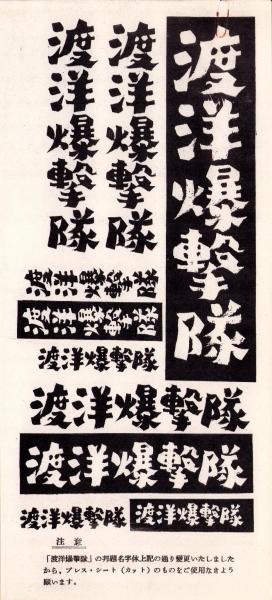 渡洋爆撃隊
渡洋爆撃隊
渡洋爆撃隊
渡洋爆撃隊
渡洋爆撃隊
渡洋爆撃隊
渡洋爆撃隊
渡洋爆撃隊
渡洋爆撃隊
渡洋爆撃隊
注意
「渡洋爆撃隊」の邦題名字体上記の通り変更いたしました
から、プレス・シート(カット)のものをご使用なきよう
願います。